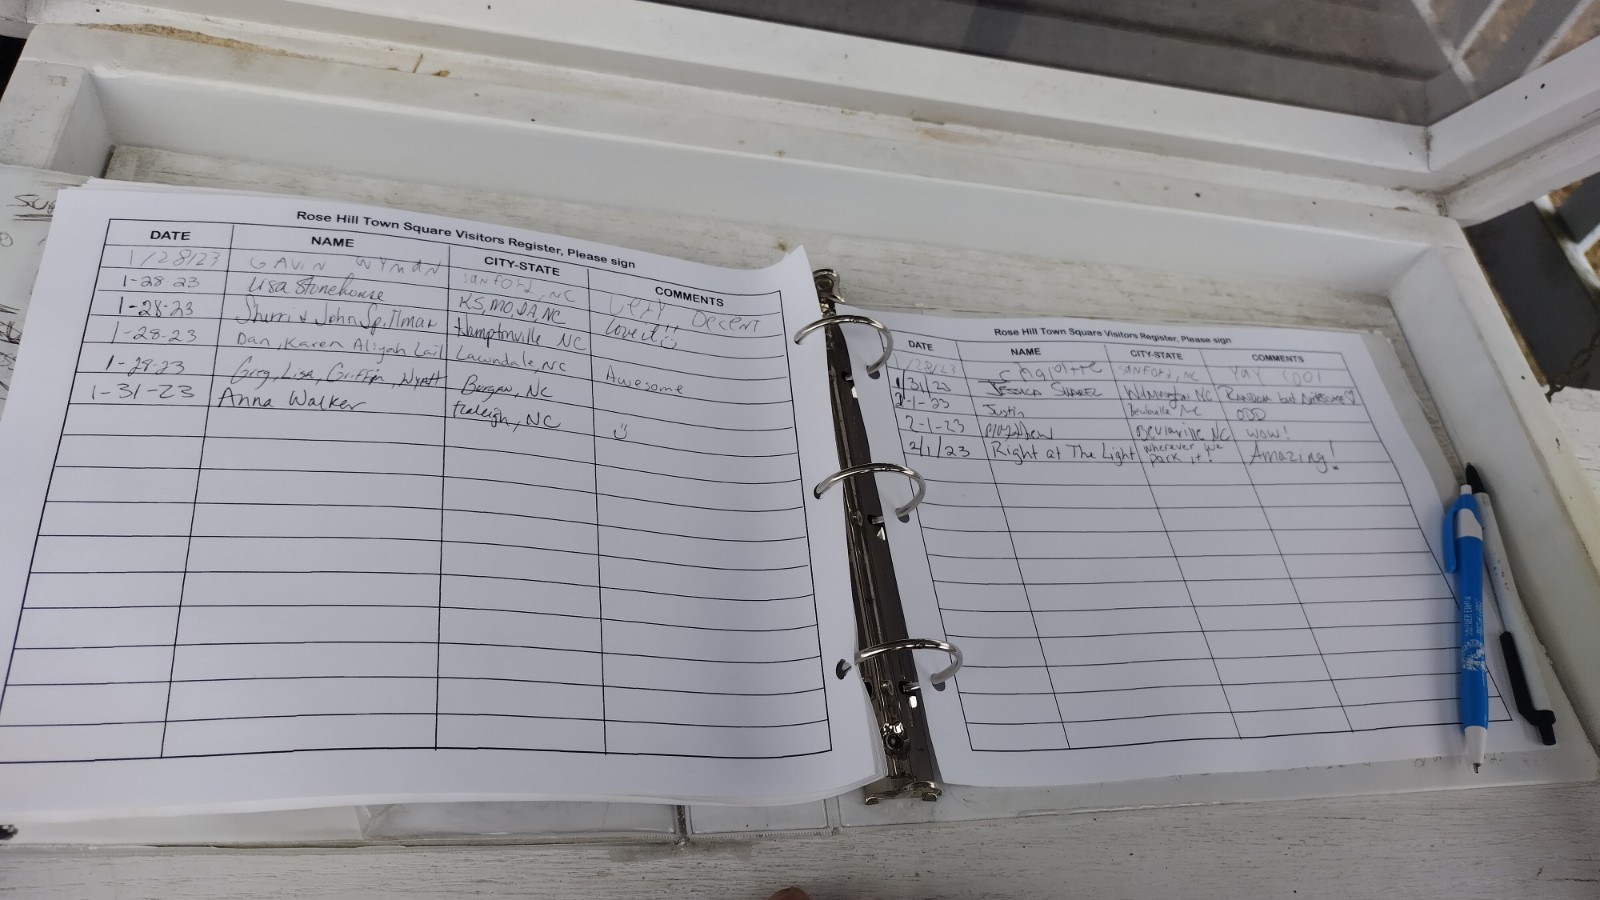 Rose Hill Town Square Visitors Register, Please sign
DATE NAME CITY-STATE COMMENTS
1/28/23 GAVIN WYMAN SANFORD, NC VERY DECENT
1-28 23 Lisa Stonehouse KS, MO, NC Love it!!
1-28-23 Sherri & John Hamptonville NC
1-28-23 Dan, Karen Aliyah Lail Lawndale, NC Awesome
1-28-23 Greg, Lisa, Griffin, Wyatt Burgaw, NC
1-31-23 Anna Walker Raleigh, NC
Rose Hill Town Square Visitors Register, Please sign
DATE NAME CITY-STATE COMMENTS
1/28/23 SANFORD, NC YAY COOL
1/31/23 JESSICA Wilmington NC Random but Awesome
2-1-23 Justin Beulaville NC ODD
2-1-23 Matthew Beulaville NC WOW!
2/1/23 Right at The Light wherever we park it! Amazing!